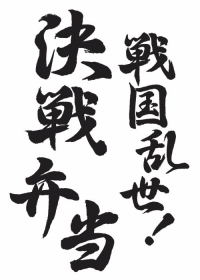 戦国乱世！
決戦弁当